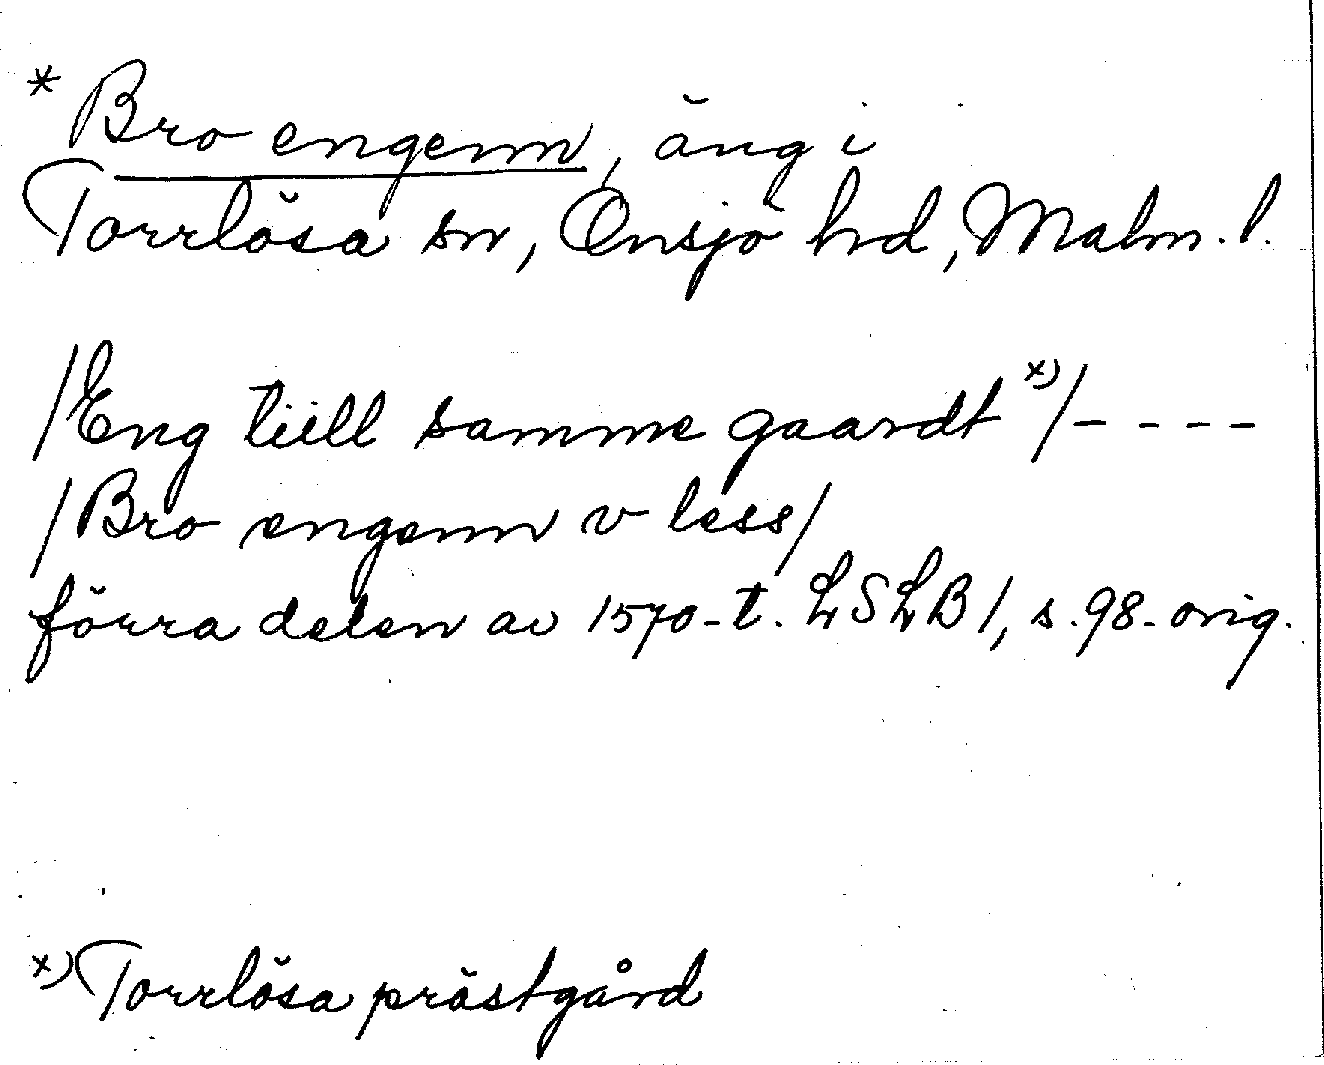 * Bro engenn, äng i
Torrlösa sn, Onsjö hd, Malm. l.
/Eng tiill samme gaardt x)/ - - - -
/Bro engenn v less/
förra delen av 1570-t. LSLB 1, s. 98 - orig.
x) Torrlösa prästgård